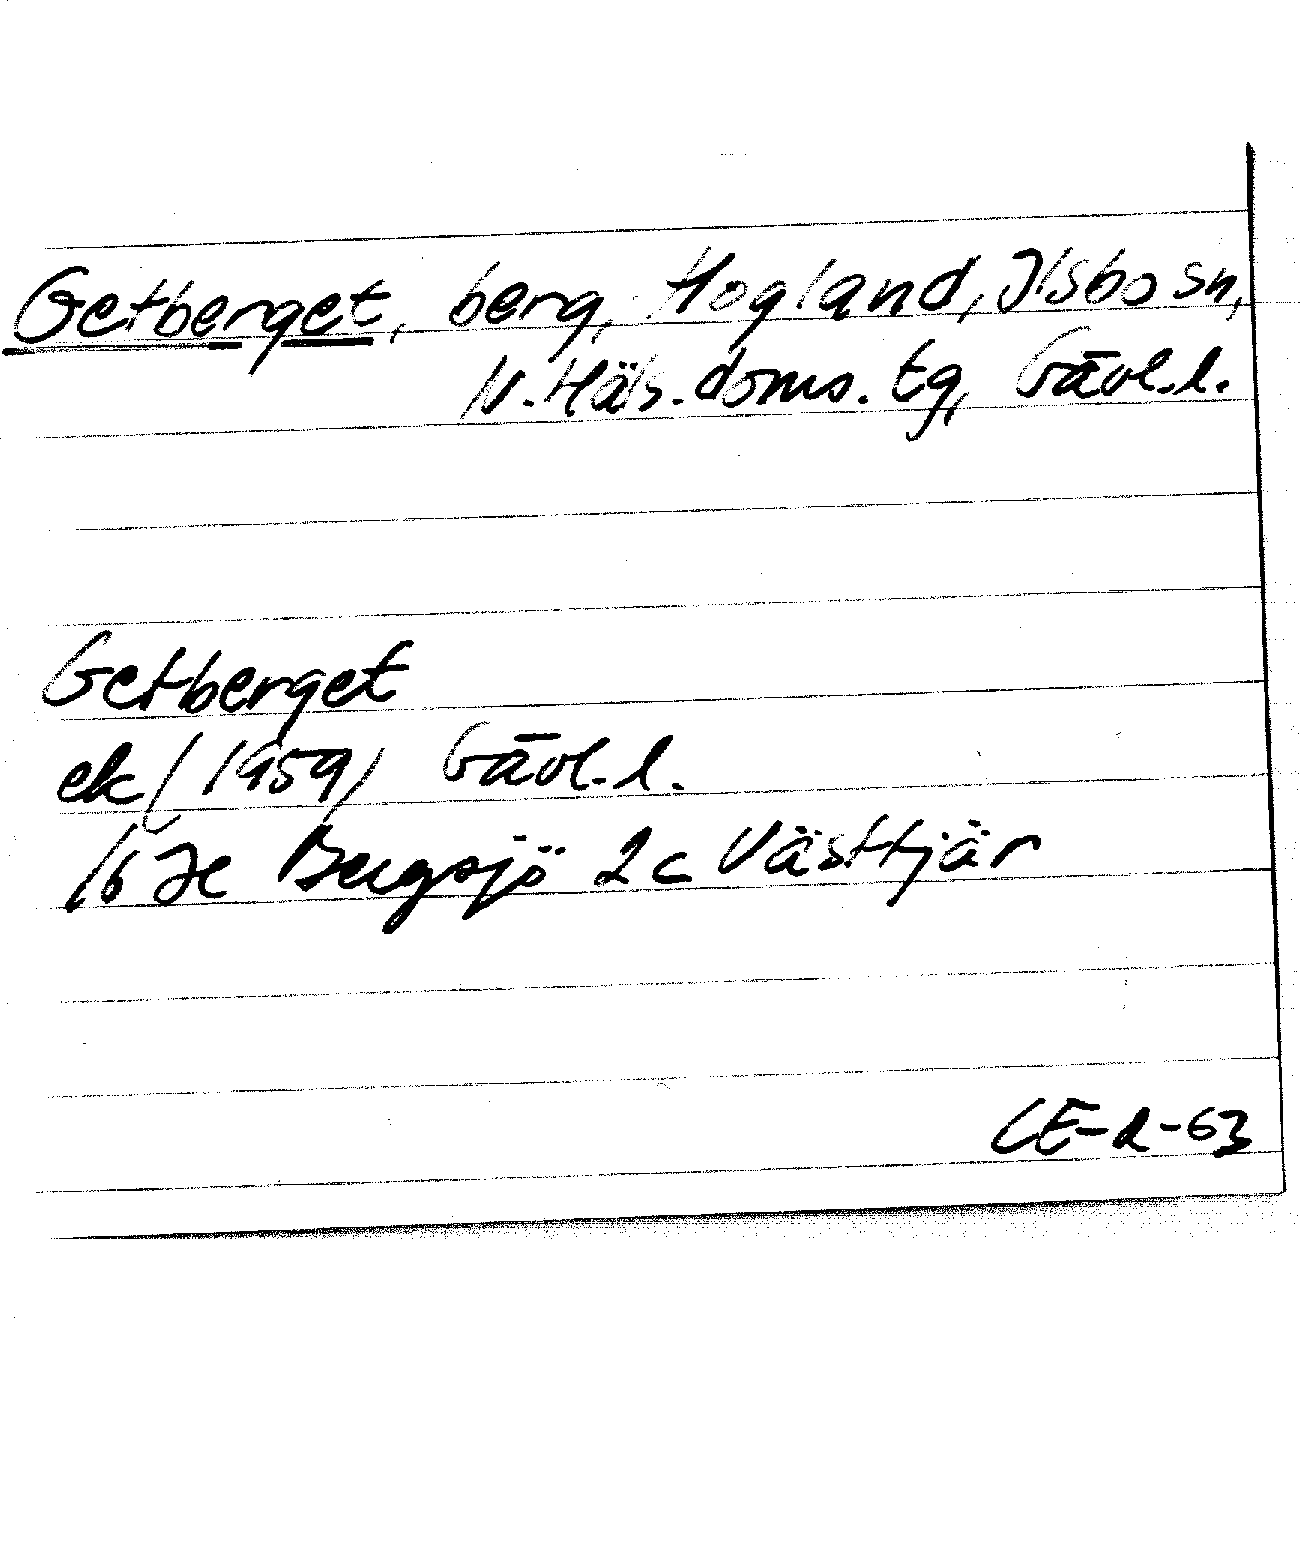 Getberget, berg, Hogland, Ilsbo sn,
N. Häls. doms. tg, Gävl.l.
Getberget
ek (1959) Gävl.l.
16 H Bergsjö 2 c Västtjär
CE-R-63